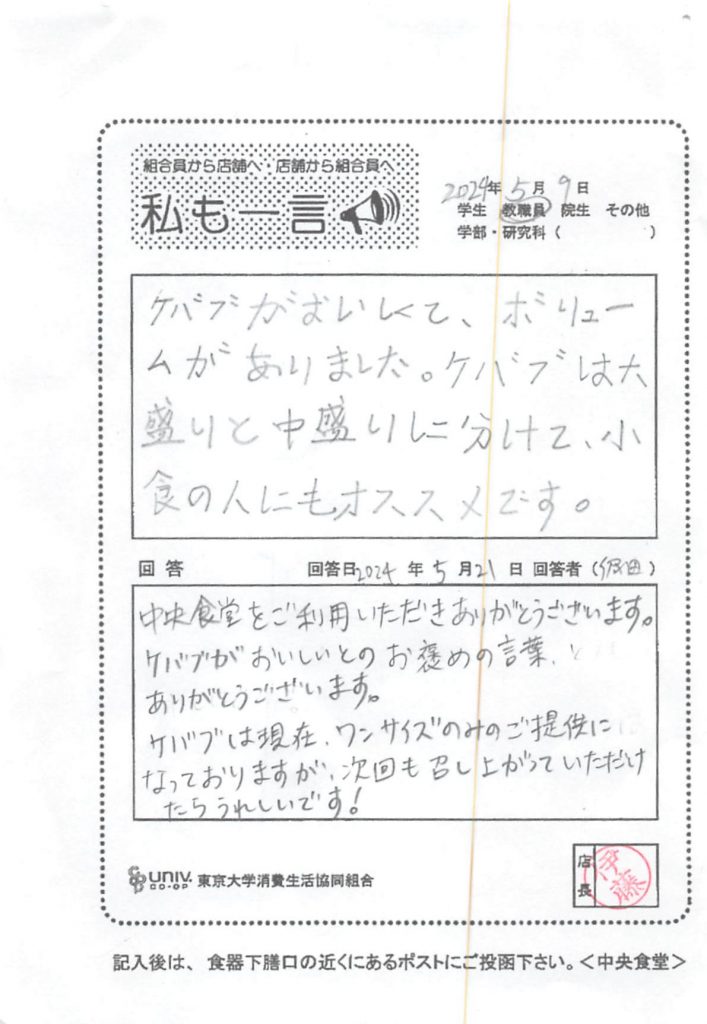 組合員から店舗へ・店舗から組合員へ
私も一言
2024年 5月 9日
学生 教職員 院生 その他
学部・研究科（ ）
ケバブがおいしくて、ボリュー
ムがありました。ケバブは大
盛りと中盛りに分けて、小
食の人にもオススメです。
回答 回答日2024年5月21日 回答者（ 田）
中央食堂をご利用いただきありがとうございます。
ケバブがおいしいとのお褒めの言葉、
ありがとうございます。
ケバブは現在、ワンサイズのみのご提供に
なっておりますが、次回も召し上がっていただけ
たらうれしいです！
店長 伊藤
UNIV. CO-OP 東京大学消費生活協同組合
記入後は、食器下膳口の近くにあるポストにご投函下さい。＜中央食堂＞